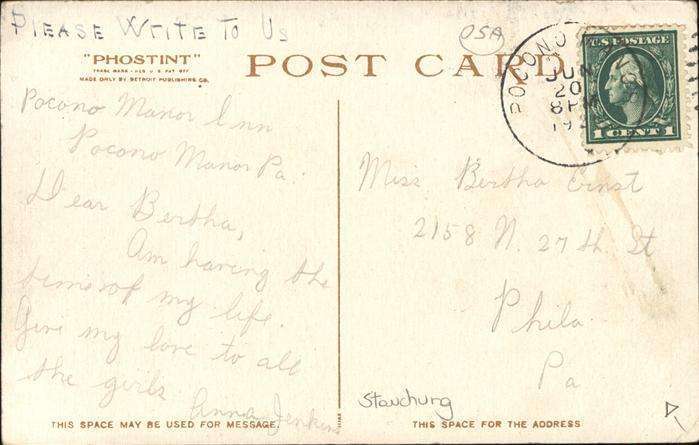 PLEASE WRITE TO US
OSA
"PHOSTINT"
TRADE MARK - REG U.S. PAT. OFF.
MADE ONLY BY DETROIT PUBLISHING CO.
POST CARD
POCONO
JUN
20
8PM
U.S. POSTAGE
1 CENT 1
Pocono Manor Inn
Pocono Manor Pa.
Dear Bertha,
Am having the
time of my life.
Give my love to all
the girls
Anna Jenkins
Miss Bertha Ernst
2158 N. 27 th St
Phila
Pa
Stauchurg
THIS SPACE MAY BE USED FOR MESSAGE.
THIS SPACE FOR THE ADDRESS